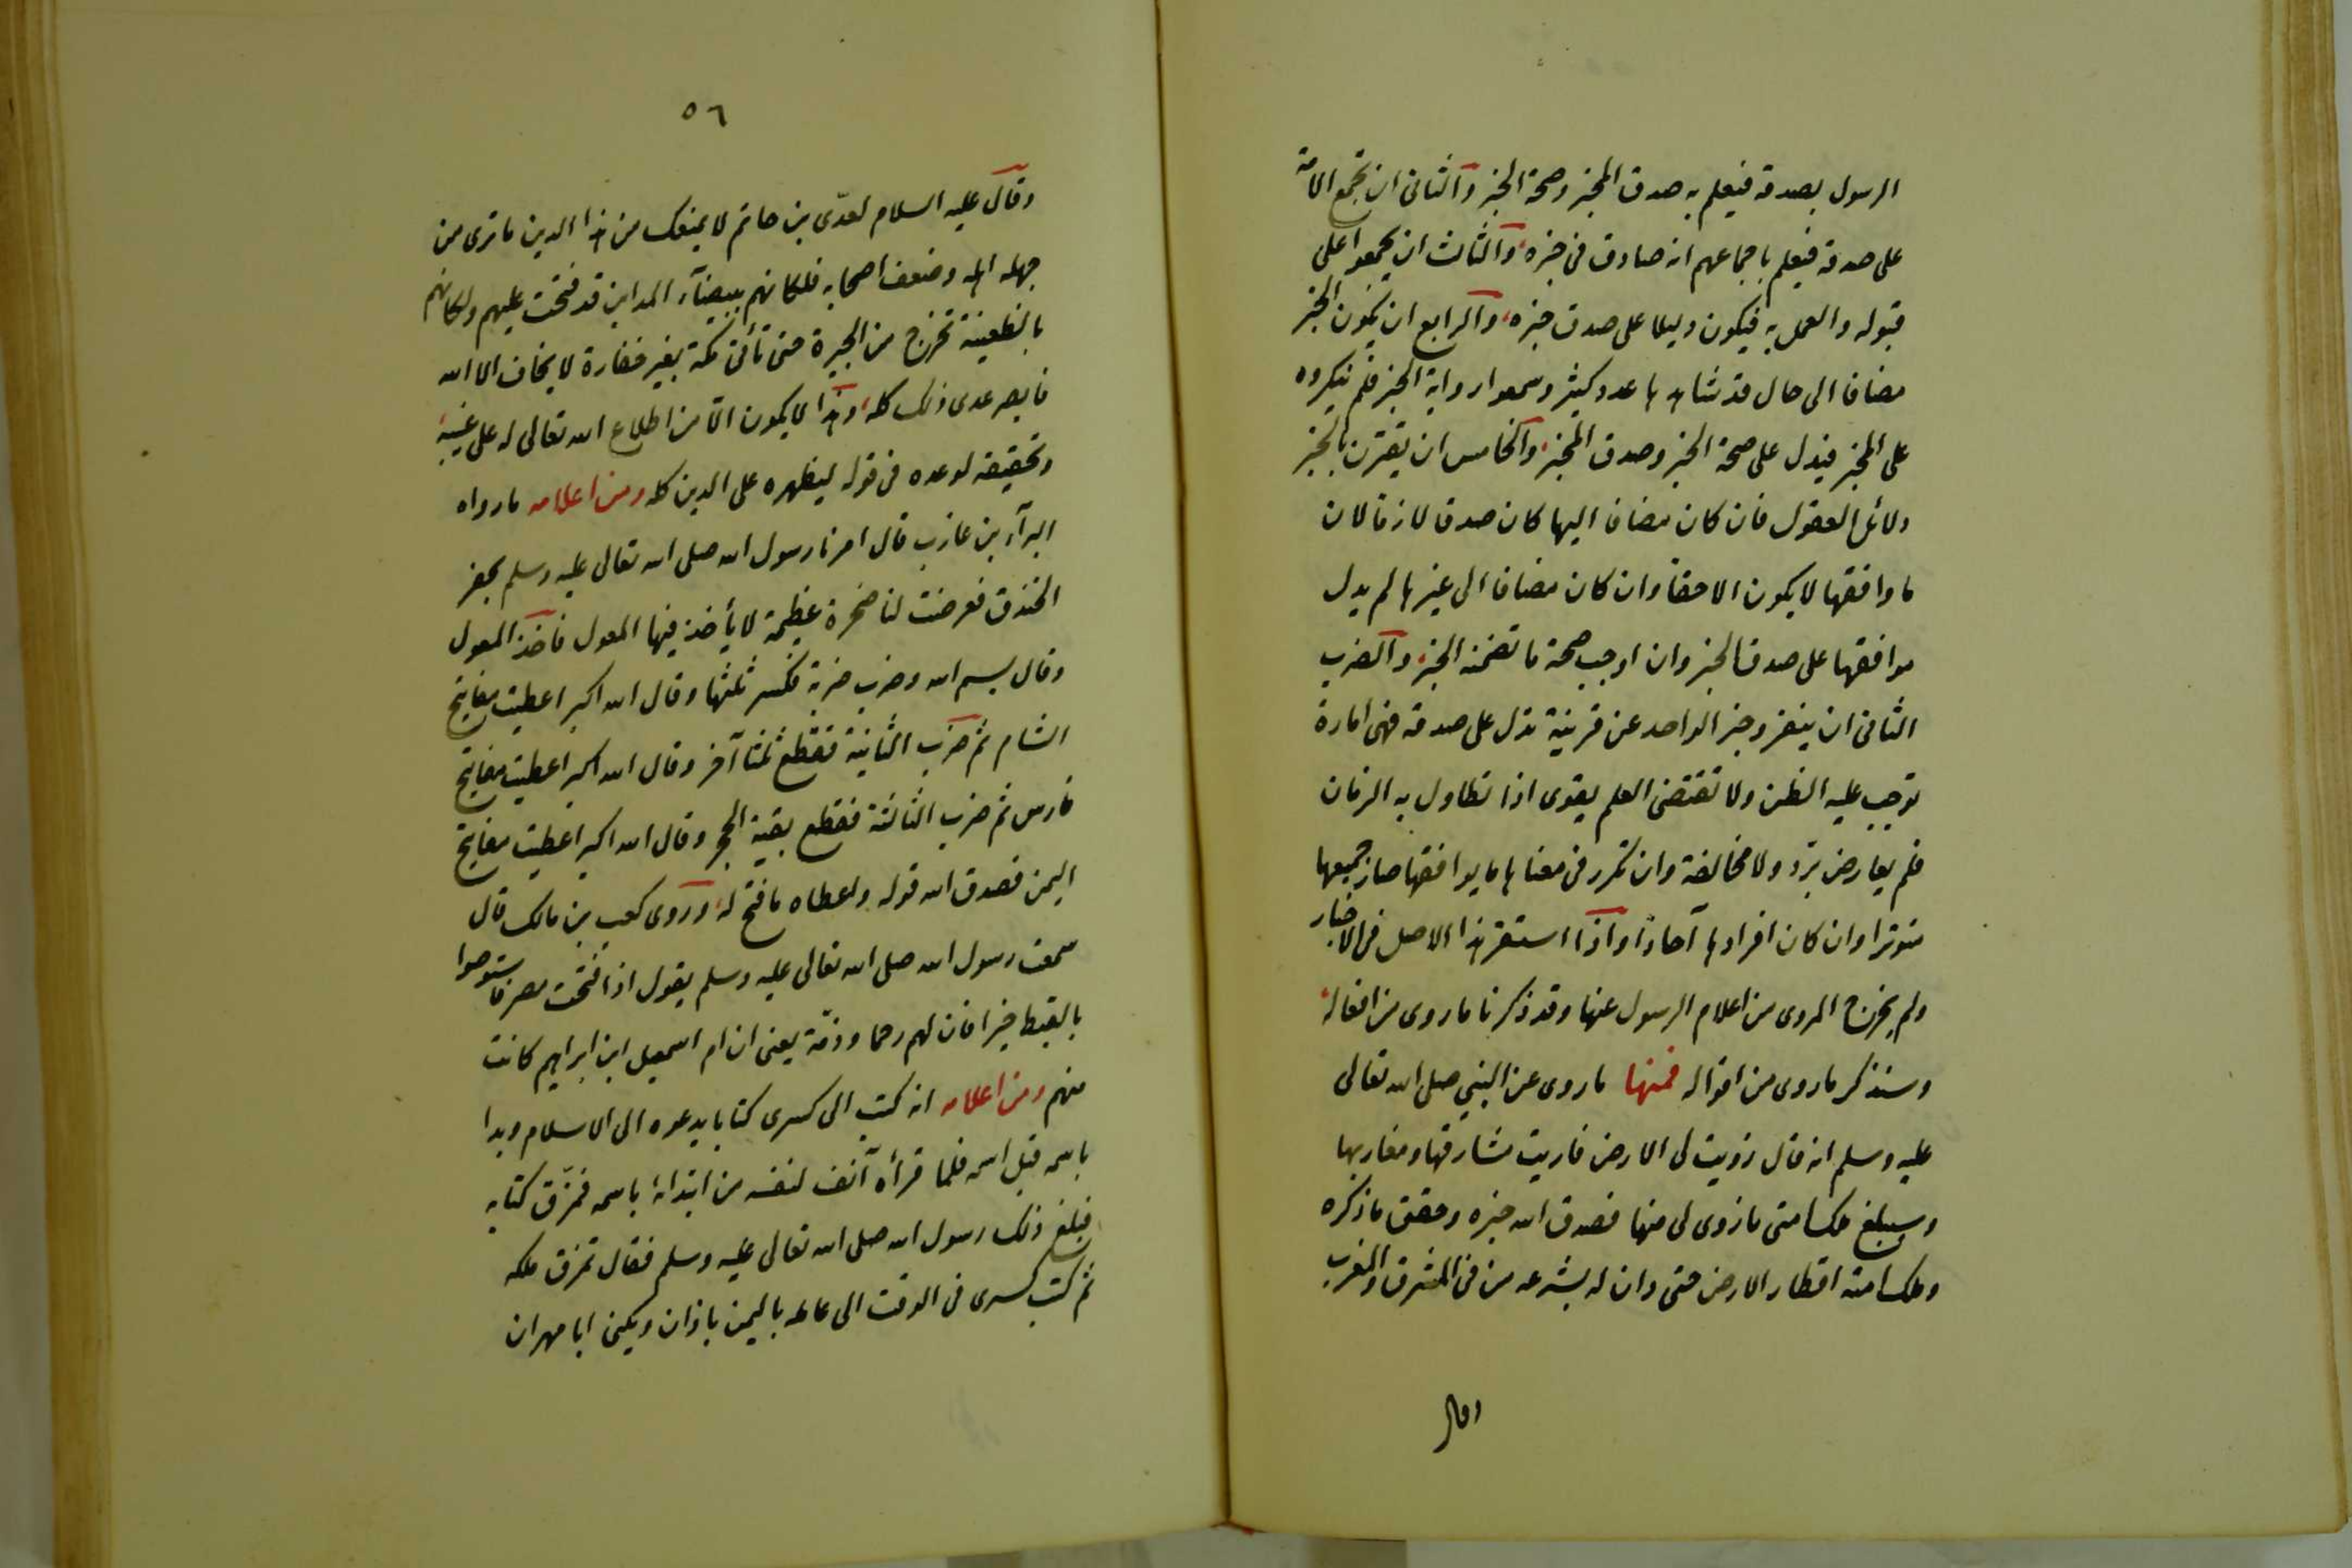 الرسول بصدقه فيعلم به صدق المخبر وصحة الخبر والثانى ان تجمع الامة
على صدقه فيعلم باجماعهم انه صادق فى خبره والثالث ان يجمعوا على
قبوله والعمل به فيكون دليلا على صدق خبره والرابع ان يكون الخبر
مضافا الى حال قد شاهدها عدد كثير وسمعوا رواية الخبر فلم ينكروه
على المخبر فيدل على صحة الخبر وصدق المخبر والخامس ان يقترن بالخبر
دلائل العقول فان كان مضافا اليها كان صدقا لازما لان
ما وافقها لا يكون الا حقا وان كان مضافا الى غيرها لم يدل
موافقها على صدق الخبر وان اوجب صحة ما تضمنه الخبر والضرب
الثانى ان ينفرد خبر الواحد عن قرينة تدل على صدقه فهى امارة
توجب عليه الظن ولا تقتضى العلم يقوى اذا تطاول به الزمان
فلم يعارض برد ولا مخالفة وان تكرر فى معناها ما يوافقها صار جميعها
متوترا وان كان افرادها آحادا واذا استقر هذا الاصل فى الاخبار
ولم يخرج المروى من اعلام الرسول عنها وقد ذكرنا ما روى من افعاله
وسنذكر ما روى من اقواله فمنها ما روى عن النبي صلى الله تعالى
عليه وسلم انه قال زويت لى الارض فاريت مشارقها ومغاربها
وسيبلغ ملك امتى ما زوى لى منها فصدق الله خبره وحقق ما ذكره
وملك امته اقطار الارض حتى دان له بشرعه من فى المشرق والمغرب
وقال
٥٦
وقال عليه السلام لعدّى بن حاتم لا يمنعك من هذا الدين ما ترى من
جهله اهله وضعف اصحابه فلكانهم ببيضآء المداين قد فتحت عليهم ولكانهم
بالظعينة تخرج من الحيرة حتى تأتى مكة بغير خفارة لا يخاف الا الله
فابصر عدى ذلك كله وهذا لا يكون الّا من اطلاع الله تعالى له على غيبه
وتحقيقه لوعده فى قوله ليظهره على الدين كله ومن اعلامه ما رواه
البرآء بن عازب قال امرنا رسول الله صلى الله تعالى عليه وسلم بحفر
الخندق فعرضت لنا صخرة عظيمة لا يأخذ فيها المعول فاخذ المعول
وقال بسم الله وضرب ضربة فكسر ثلثها وقال الله اكبر اعطيت مفاتيح
الشام ثم ضرب الثانية فقطع ثلثا آخر وقال الله اكبر اعطيت مفاتيح
فارس ثم ضرب الثالثة فقطع بقية الحجر وقال الله اكبر اعطيت مفاتيح
اليمن فصدق الله قوله واعطاه ما فتح له وروى كعب بن مالك قال
سمعت رسول الله صلى الله تعالى عليه وسلم يقول اذا فتحت مصر فاستوصوا
بالقبط خيرا فان لهم رحما وذمّة يعنى ان ام اسمعيل ابن ابراهيم كانت
منهم ومن اعلامه انه كتب الى كسرى كتابا يدعوه الى الاسلام وبدا
باسمه قبل اسمه فلما قرأه آنف لنفسه من ابتدائه باسمه فمزّق كتابه
فبلغ ذلك رسول الله صلى الله تعالى عليه وسلم فقال تمزق ملكه
ثم كتب كسرى فى الوقت الى عامله باليمن باذان ويكنى ابا مهران